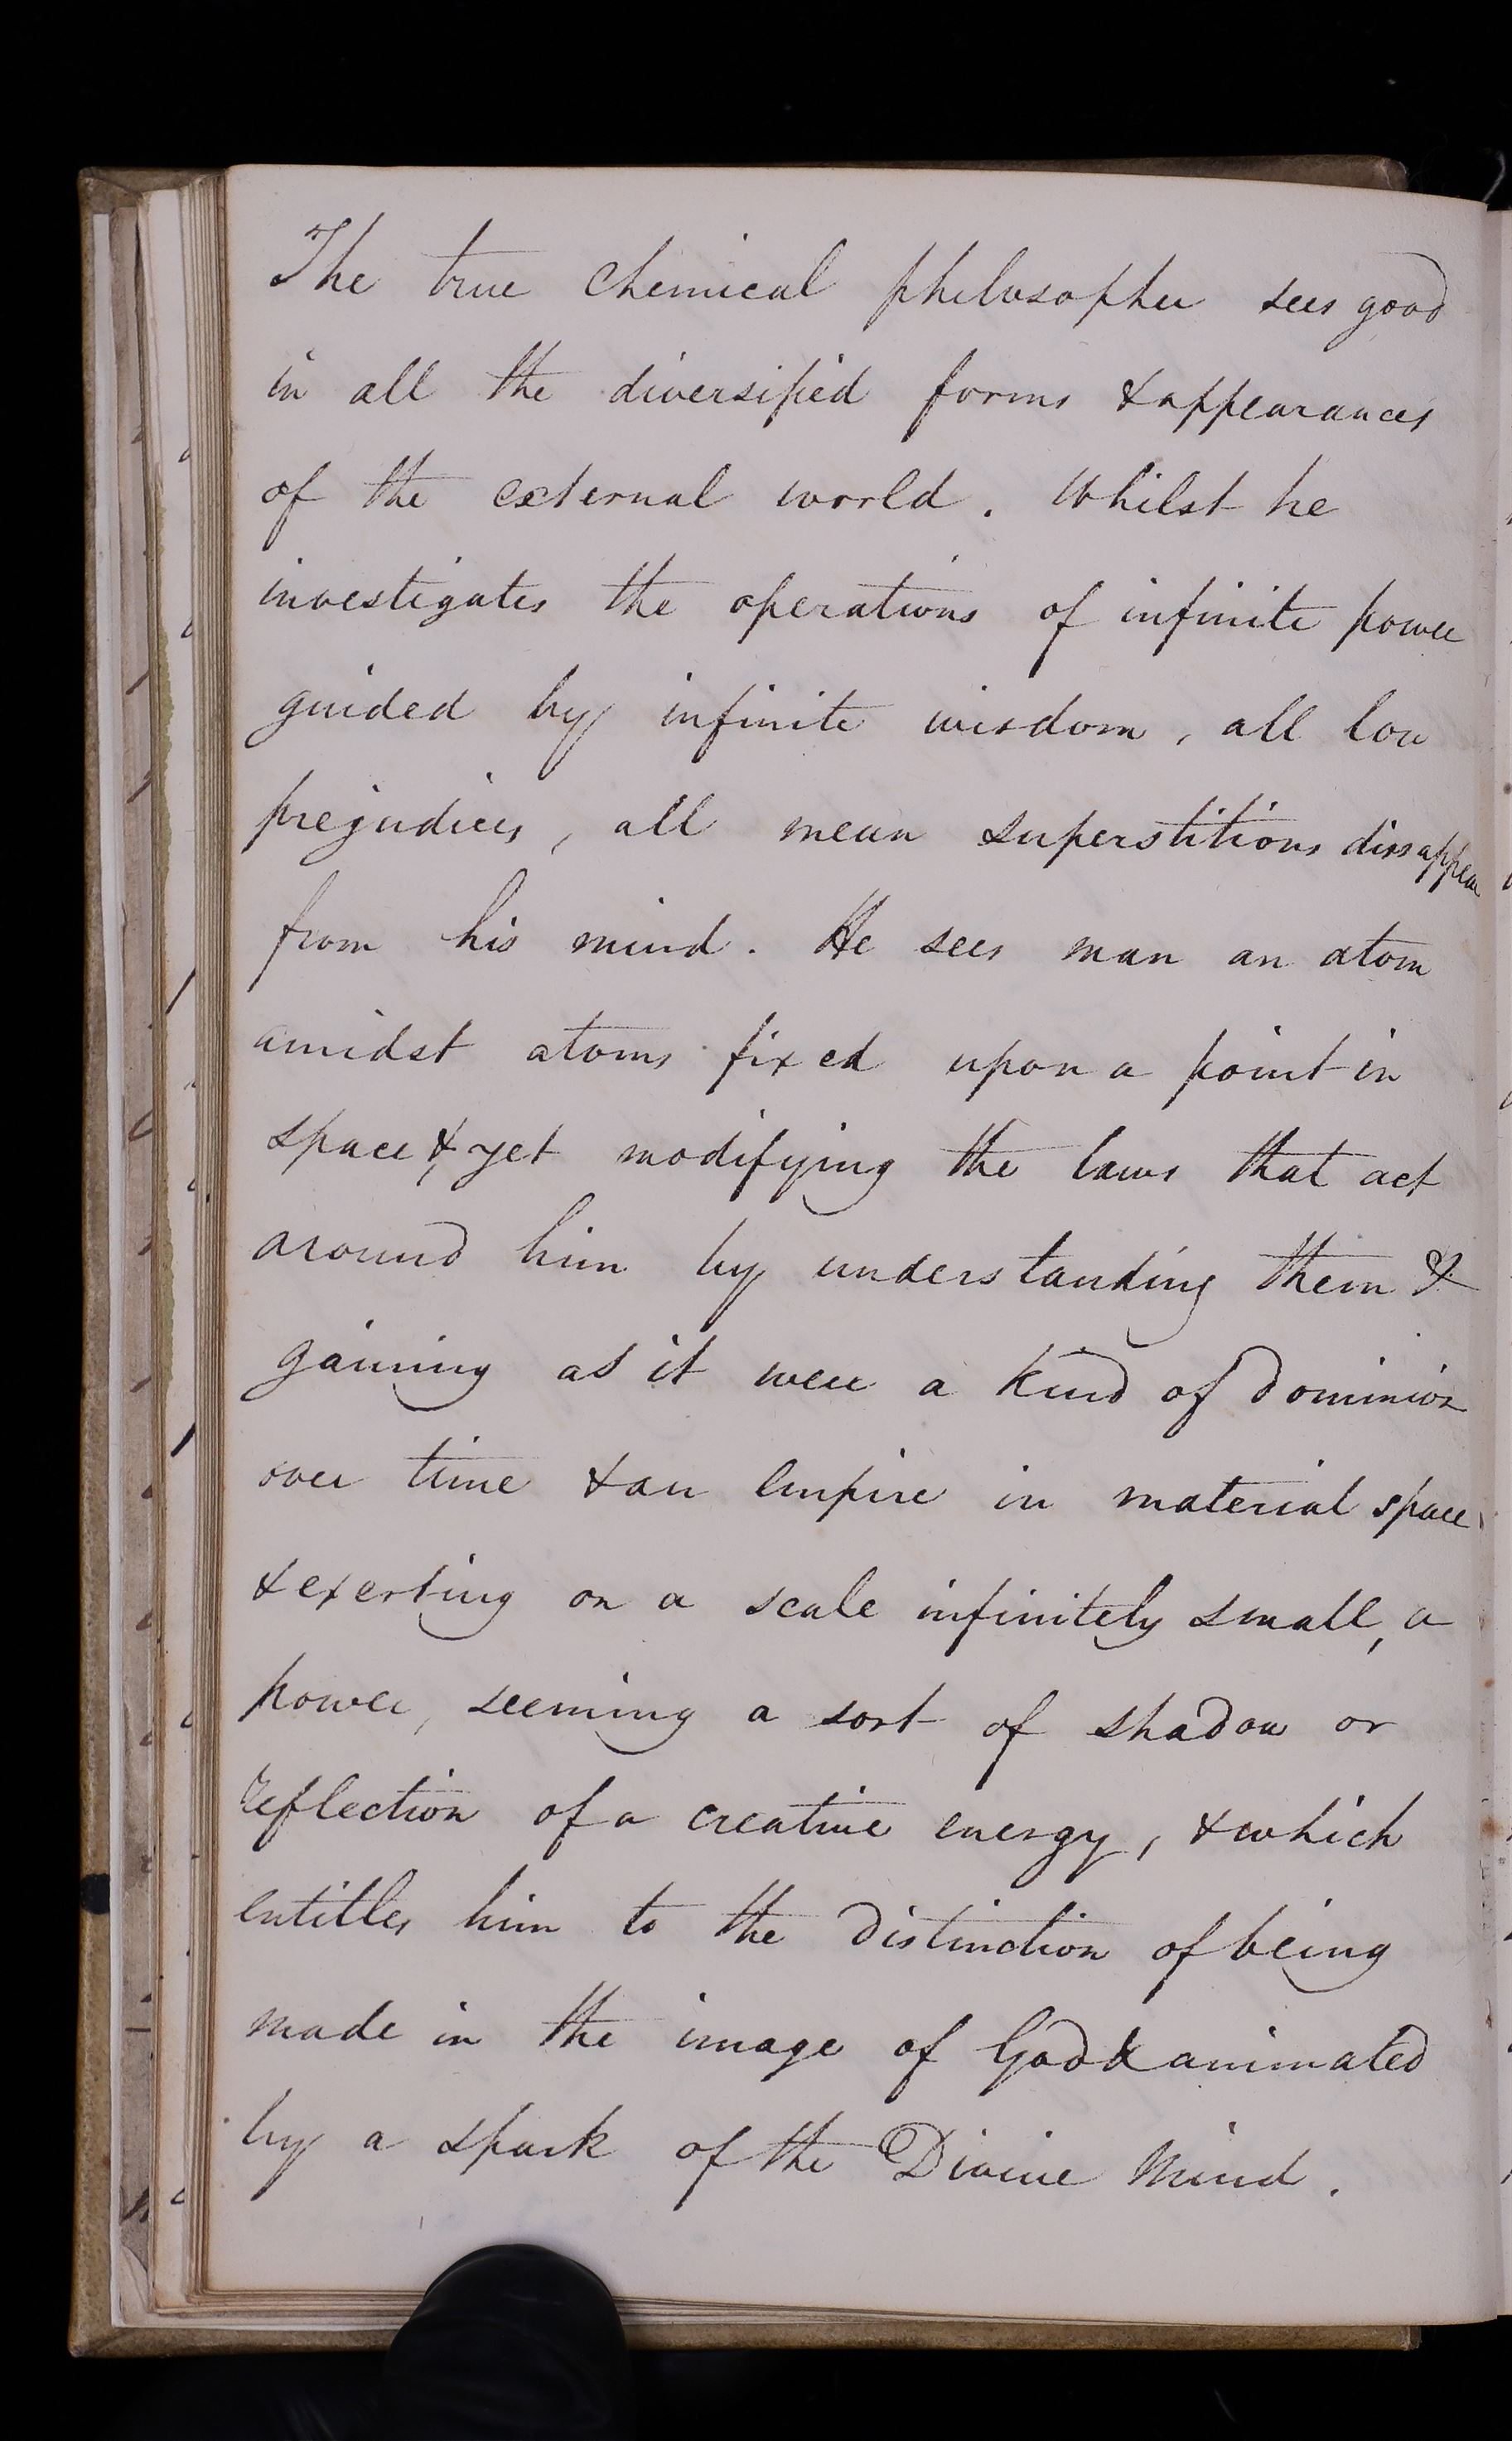 The true Chemical philosopher sees good
in all the diversified forms & appearances
of the external world. Whilst he
investigates the operations of infinite power
guided by infinite wisdom, all low
prejudices, all mean superstitions dissappear
from his mind. He sees man an atom
amidst atoms fixed upon a point in
space &, yet modifying the laws that act
around him by understanding them &
gaining as it were a kind of dominion
over time & an empire in material space,
& exerting on a scale infinitely small, a
power, seeming a sort of shadow or
reflection of a creative energy, & which
entitles him to the distinction of being
made in the image of God & animated
by a spark of the Divine Mind.